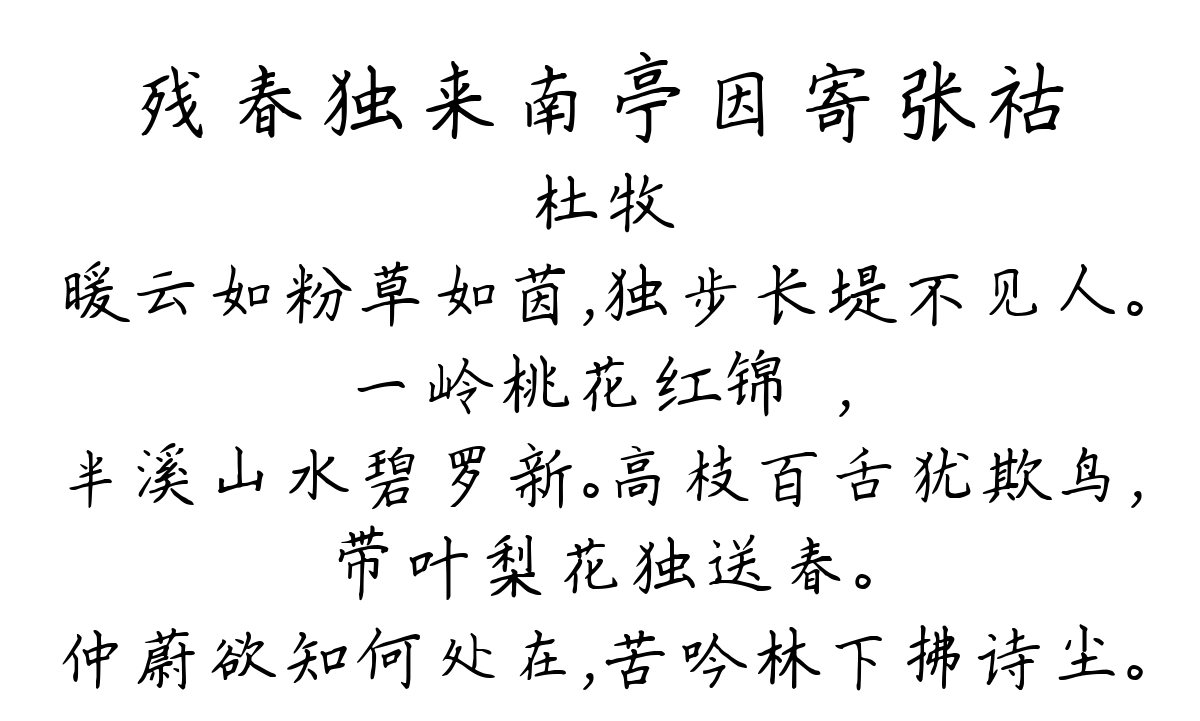 残春独来南亭因寄张祜
杜牧
暖云如粉草如茵,独步长堤不见人。
一岭桃花红锦 ,
半溪山水碧罗新。高枝百舌犹欺鸟,
带叶梨花独送春。
仲蔚欲知何处在,苦吟林下拂诗尘。